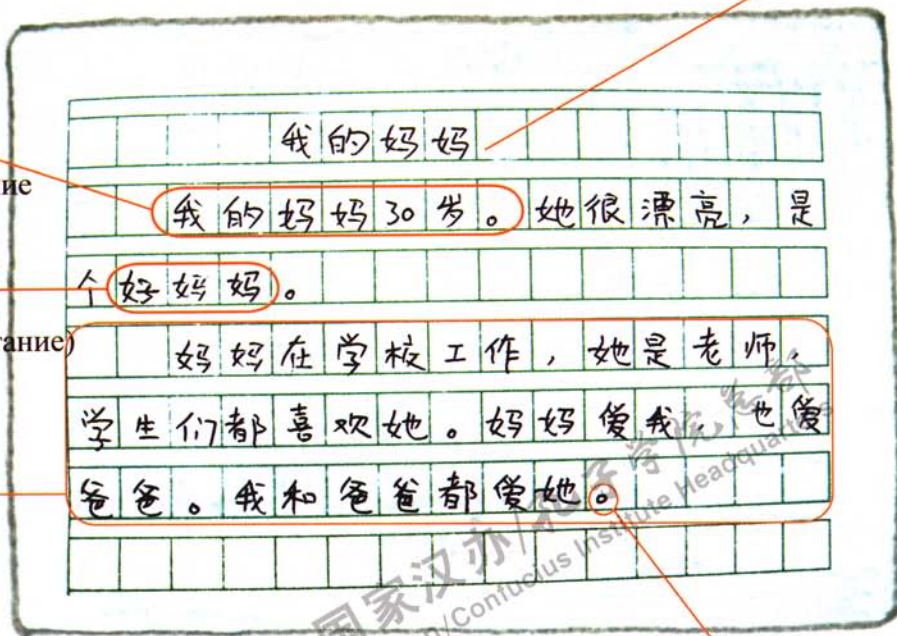 我的妈妈
我的妈妈30岁。她很漂亮,是
个好妈妈。
妈妈在学校工作,她是老师,
学生们都喜欢她。妈妈爱我,也爱
爸爸。我和爸爸都爱她。
ие
тание)
国家汉办/孔子学院总部
n/Confucius Institute Headquarters